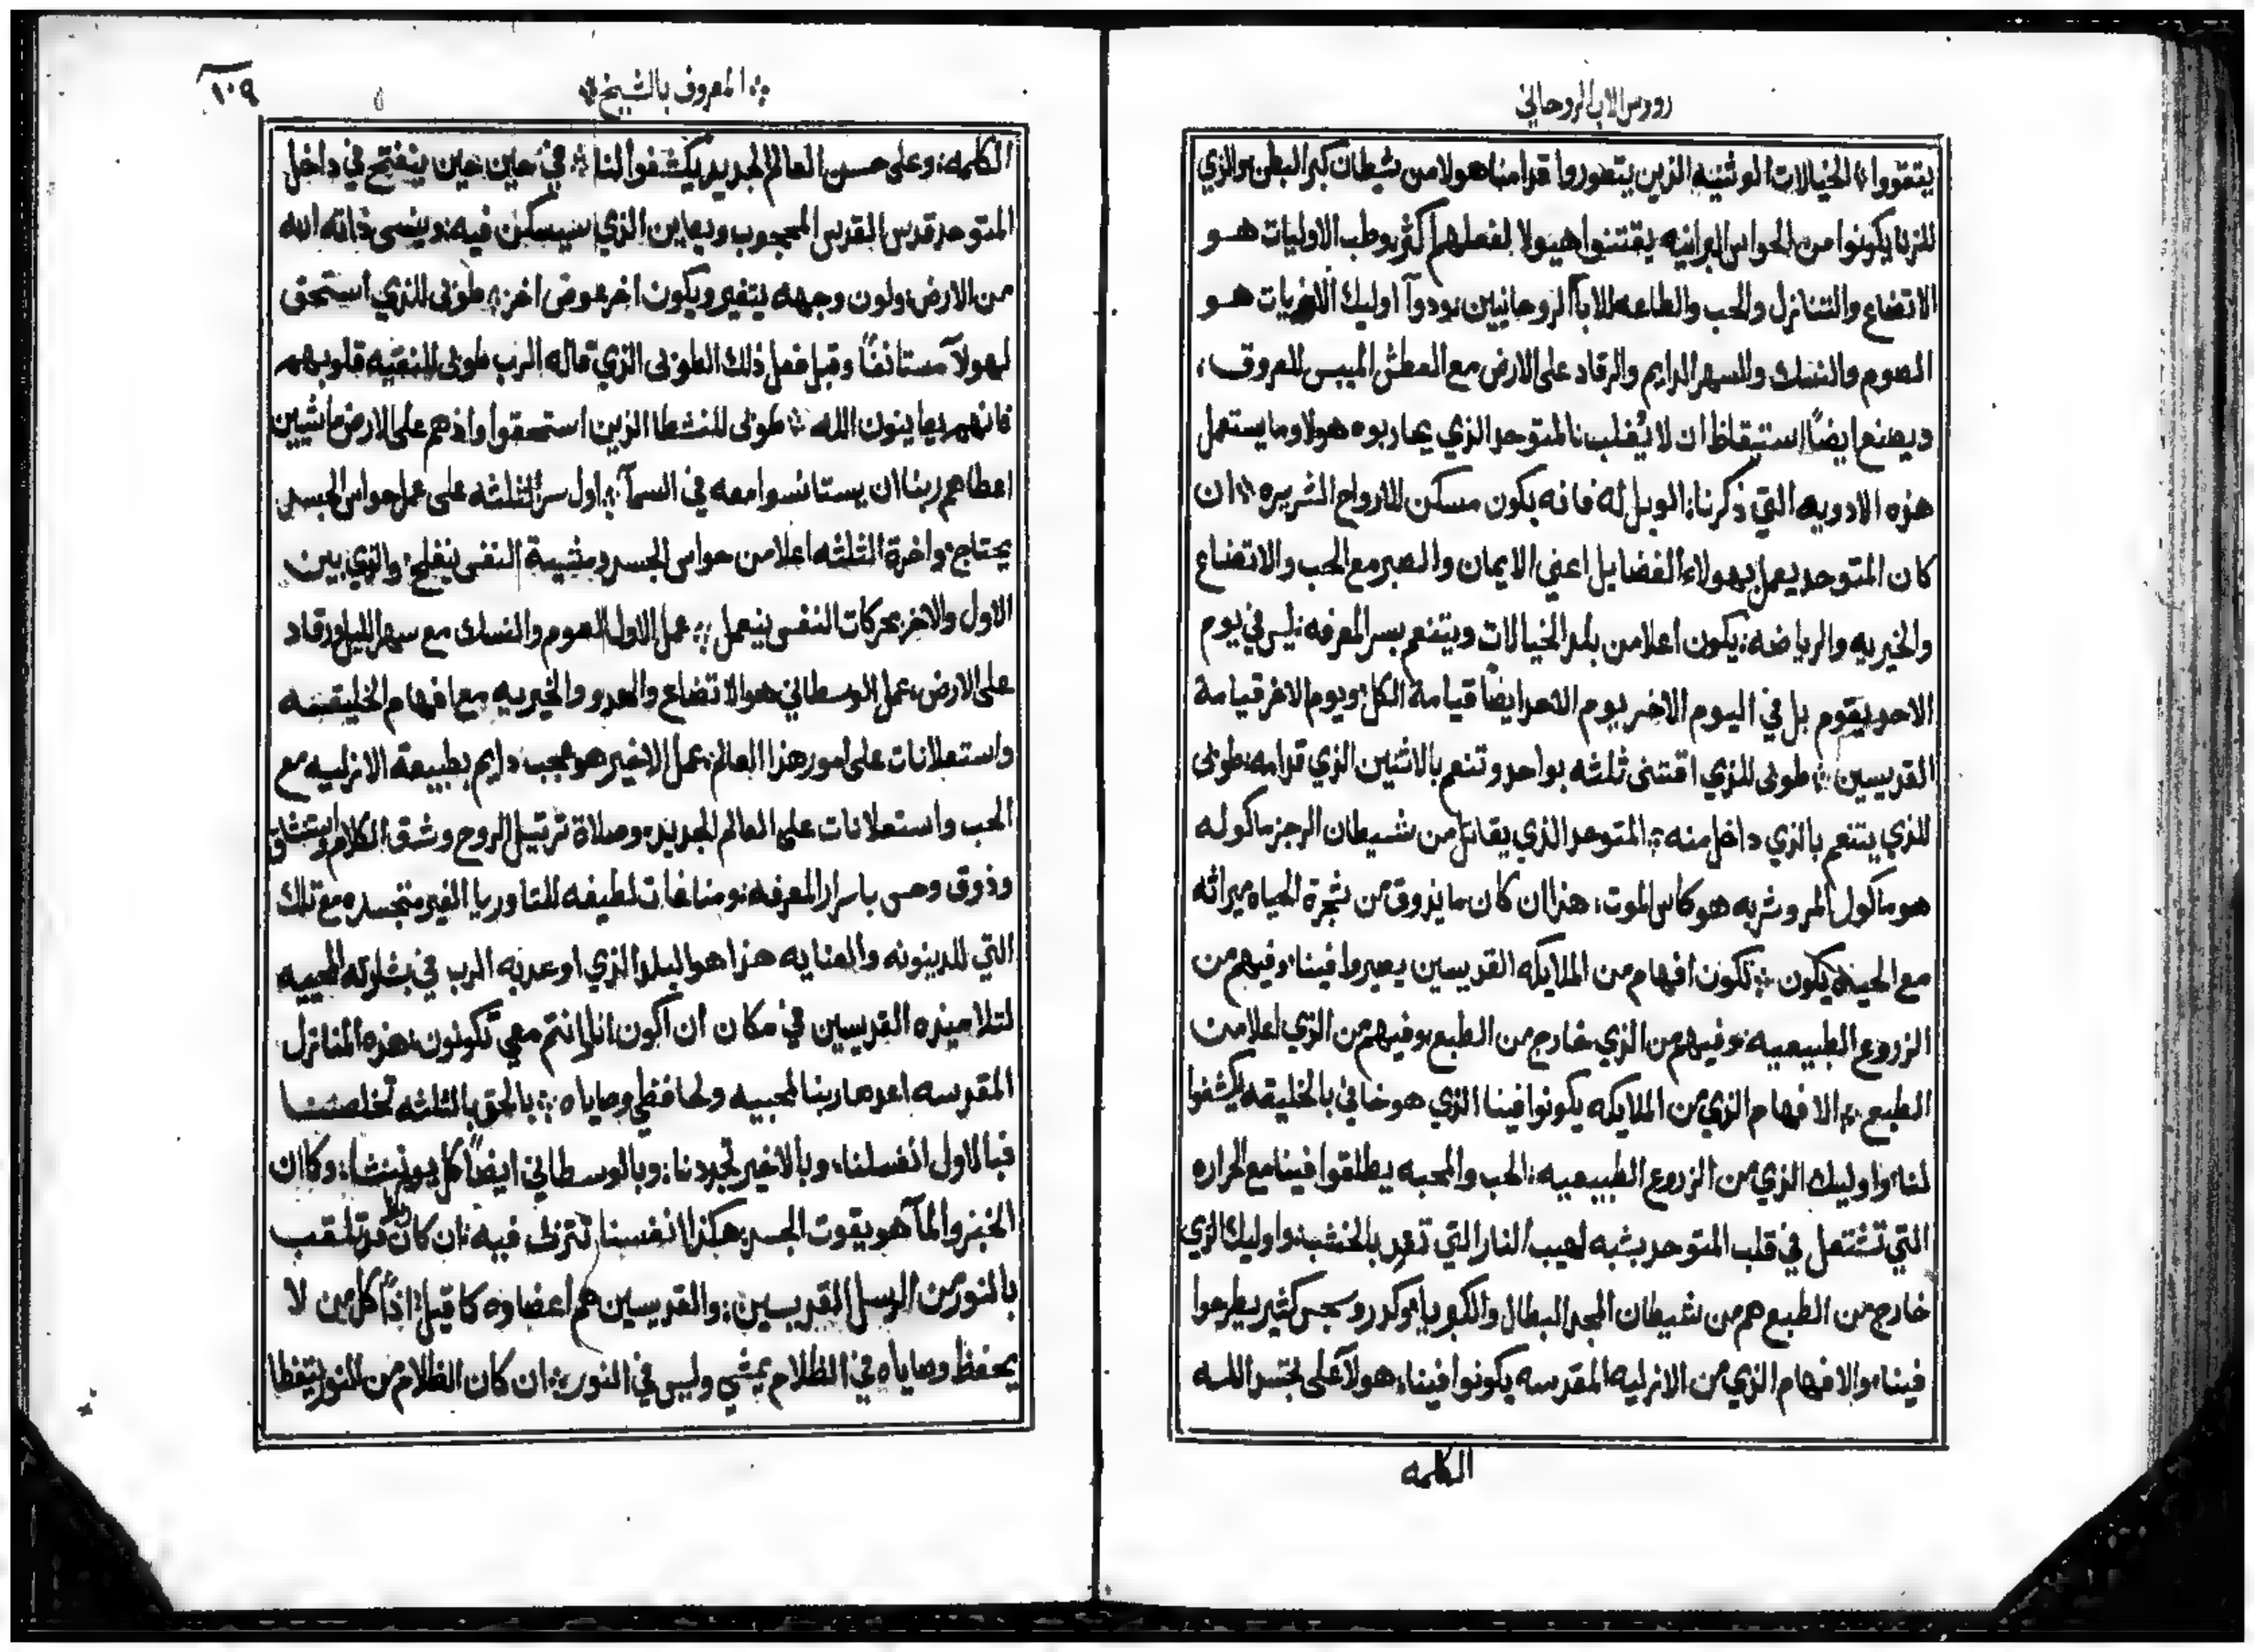 رووس الاب الروحاني
يتقووا ❖ الخيالات الوثنيه الذين يتصوروا قدامنا هولا من شيطان كبر البطن والذي
للزنا يكونوا من الحواس البرانيه يقتنوا هيولا لفعلهم اكثر وطب الاوليات هو
الاتضاع والتنازل والحب والطاعه للابآ الروحانيين يودوآ اوليك الاخريات هو
الصوم والنسك والسهر الدايم والرقاد على الارض مع العطش الميبس للعروق :
ويصنع ايضًا استيقاظ ان لا يُغلب المتوحد الذي يحاربوه هولا وما يستعمل
هذه الادويه التي ذكرنا : الويل له فانه يكون مسكن للارواح الشريره ❖ ان
كان المتوحد يعمل بهولاء الفضايل اعني الايمان والصبر مع الحب والاتضاع
والخيريه والرياضه : يكون اعلا من بلد الخيالات ويتنعم بسر المعرفه : ليس في يوم
الاحد يقوم بل في اليوم الاخر يوم الاحد ايضًا قيامة الكل : ويوم الاخر قيامة
القديسين ❖ طوبى للذي اقتنى ثلثه بواحد وتنعم بالاثنين الذي قدامه : طوبى
للذي يتنعم بالذي داخل منه ❖ المتوحد الذي يقاتل من شيطان الرجز ماكوله
هو ماكول المر وشربه هو كاس الموت : هذا ان كان ما يذوق من شجرة الحياه ميراثه
مع الحيه يكون ❖ تكون افهام من الملايكه القديسين يصيروا فينا : وفيهم من
الزروع الطبيعيه : وفيهم من الذي خارج من الطبع : وفيهم من الذي اعلا من
الطبع ❖ الافهام الذي من الملايكه يكونوا فينا الذي هو خافي بالخليقه يكشفوا
لنا : واوليك الذي من الزروع الطبيعيه : الحب والمحبه يطلقوا فينا مع الحراره
التي تشتعل في قلب المتوحد بشبه لهيب النار التي تقد بالخشب : واوليك الذي
خارج من الطبع هم من شيطان المجد البطال والكبريا : وكدر وسجس كثير يطرحوا
فينا : والافهام الذي من الازليه المقدسه يكونوا فينا : هولآ على تجسد الله
الكلمه
❖ المعروف بالشيخ ❖
١٠٩
الكلمه : وعلى حسن العالم الجديد يكشفوا لنا ❖ في حين حين ينفتح في داخل
المتوحد قدس القدس المحجوب ويعاين الذي سيسكن فيه : وينسى ذاته انه
من الارض : ولون وجهه يتغير ويكون اخر عوض اخر ❖ طوبى للذي استحق
لهولآ مستانفًا وقبل فعل ذلك الطوبى الذي قاله الرب طوبى للنقيه قلوبهم
فانهم يعاينون الله ❖ طوبى للنشطا الذين استحقوا واذهم على الارض ماشيين
اعطاهم ربنا ان يستانسوا معه في السمآ ❖ اول سر الثلثه على عمل حواس الجسد
يحتاج : واخرة الثلثه اعلا من حواس الجسد ومشيية النفس ينفلح : والذي بين
الاول والاخر بحركات النفس ينعمل ❖ عمل الاول الصوم والنسك مع سهر الليل ورقاد
على الارض : عمل الوسطاني هو الاتضاع والهدو والخيريه مع افهام الخليقه
واستعلانات على امور هذا العالم : عمل الاخير هو عجب دايم بطبيعة الازليه مع
الحب واستعلانات على العالم الجديد : وصلاة ترتيل الروح وشق الكلام واستنشاق
وذوق وحس باسرار المعرفه : ومناغات لطيفه للتاوريا الغير متجسده مع تلك
التي للدينونه والعنايه هذا هو البلد الذي اوعد به الرب في بشارته المحييه
لتلاميذه القديسين في مكان ان اكون انا انتم معي تكونون : هذه المنازل
المقدسه اعدها ربنا لمحبيه ولحافظي وصاياه ❖ بالحق بالثلثه تخلصنا
فبالاول انفسلنا : وبالاخير تجددنا : وبالوسطاني ايضًا كل يوم ننشا : وكان
الخبز والمآ هو يقوت الجسد : هكذا انفسنا تتربى فيه : ان كان الرب قد تلقب
بالنور من الرسل القديسين : والقديسين هم اعضاوه كما قيل : اذًا كل من لا
يحفظ وصاياه في الظلام يمشي وليس في النور ❖ ان كان الظلام من النور يتغطا